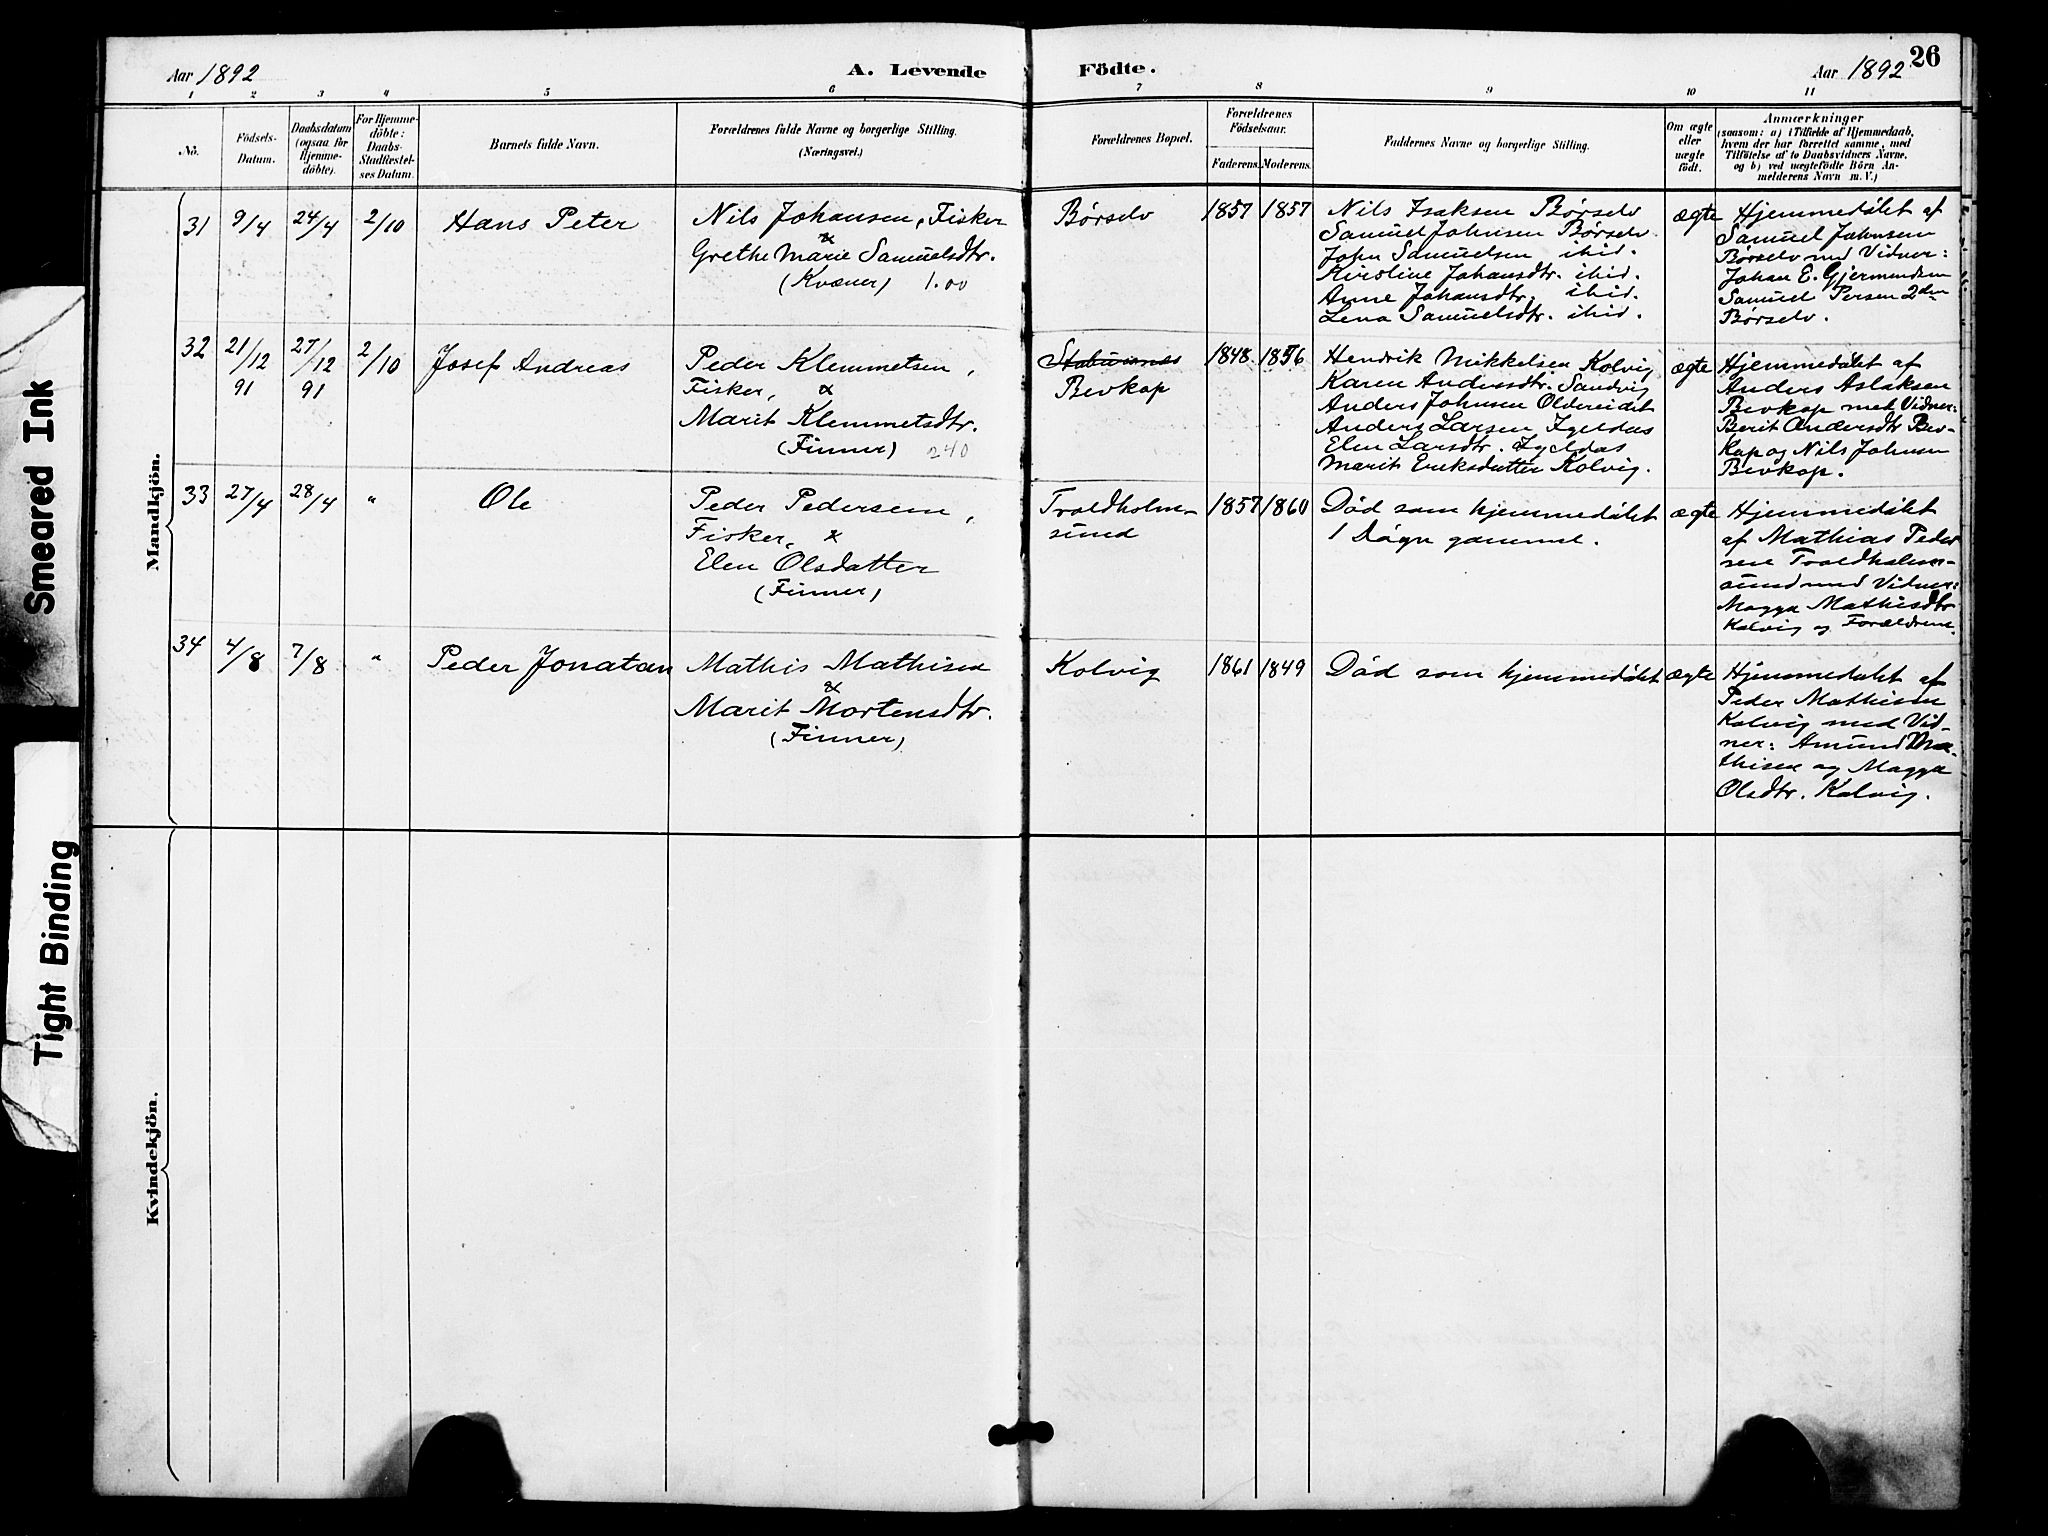 Smeared Ink
Tight Binding
Aar 1892
A. Levende
Födte.
Aar 1892
26
1
2
3
4
5
6
7
8
9
10
11
No.
Födsels-
Datum.
Daabsdatum
(ogsaa for
Hjemme-
döbte).
For Hjemme-
döbte:
Daabs-
Stadfæstel-
ses Datum.
Barnets fulde Navn.
Forældrenes fulde Navne og borgerlige Stilling.
(Næringsvei.)
Forældrenes Bopæl.
Forældrenes
Födselsaar.
Faderens.
Moderens.
Faddernes Navne og borgerlige Stilling.
Om ægte
eller
uægte
födt.
Anmærkninger
(saasom: a) i Tilfælde af Hjemmedaab,
hvem der har forrettet samme, med
Tilföielse af to Daabsvidners Navne,
og b) ved uægtefödte Börn An-
melderens Navn m. V.)
Mandkjön.
31
9/4
24/4
2/10
Hans Peter
Nils Johansen, Fisker
&
Grethe Marie Samuelsdtr.
(Kvæner) 1.00
Børselv
1857
1857
Nils Isaksen Børselv
Samuel Johnsen Børselv
John Samuelsen ibid.
Kiroline Johansdtr. ibid.
Anne Johansdtr. ibid.
Lena Samuelsdtr. ibid.
ægte
Hjemmedøbt af
Samuel Johnsen
Børselv med Vidner:
Johan E. Gjermundsen
Samuel Persen 2den
Børselv.
32
21/12
91
27/12
91
2/10
Josef Andreas
Peder Klemmetsen,
Fisker, &
Marit Klemmetsdtr.
(Finner) 240
Stabursnes
Bevkop
1848
1856
Hendrik Mikkelsen Kolvig
Karen Andersdtr. Sandvig
Anders Johnsen Oldereidet
Anders Larsen Igeldas
Elen Larsdtr. Igeldas
Marit Eriksdatter Kolvig.
ægte
Hjemmedøbt af
Anders Aslaksen
Bevkop med Vidner:
Berit Andersdtr Bev-
kop og Nils Johnsen
Bevkop.
33
27/4
28/4
"
Ole
Peder Pedersen,
Fisker, &
Elen Olsdatter
(Finner)
Troldholm-
sund
1857
1860
Død som hjemmedøbt
1 Døgn gammel.
ægte
Hjemmedøbt
af Mathias Peder
sen Troldholm-
sund med Vidner:
Magga Mathisdtr
Kolvig og Forældrene.
34
4/8
7/8
"
Peder Jonatan
Mathis Mathisen
&
Marit Mortensdtr.
(Finner)
Kolvig
1861
1849
Død som hjemmedøbt
ægte
Hjemmedøbt af
Peder Mathisen
Kolvig med Vid-
ner: Amund Ma-
thisen og Magga
Olsdtr. Kolvig.
Kvindekjön.